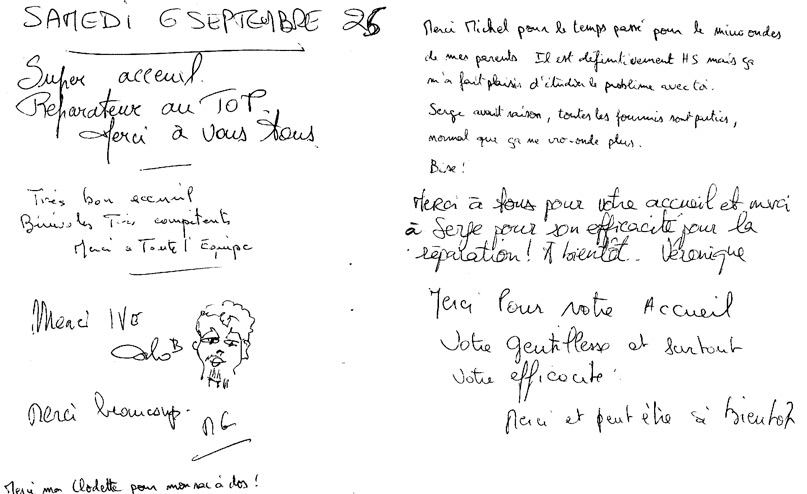 SAMEDI 6 SEPTEMBRE 25
Super acceuil.
Reparateur au TOP.
Merci à vous tous.
Très bon accueil
Bénévoles Très compétents
Merci à Toute l'Équipe
Merci IVO
Merci beaucoup.
MG
Merci ma Clodette pour mon sac à dos !
Merci Michel pour le temps passé pour le micro ondes
de mes parents Il est définitivement HS mais ça
m'a fait plaisir d'étudier le problème avec toi.
Serge avait raison, toutes les fourmis sont parties,
normal que ça ne cro-onde plus.
Bise !
Merci à tous pour votre accueil et merci
à Serge pour son efficacité pour la
réparation ! A bientôt. Véronique
Merci Pour votre Accueil
Votre gentillesse et surtout
Votre efficacité.
Merci et peut être à bientôt